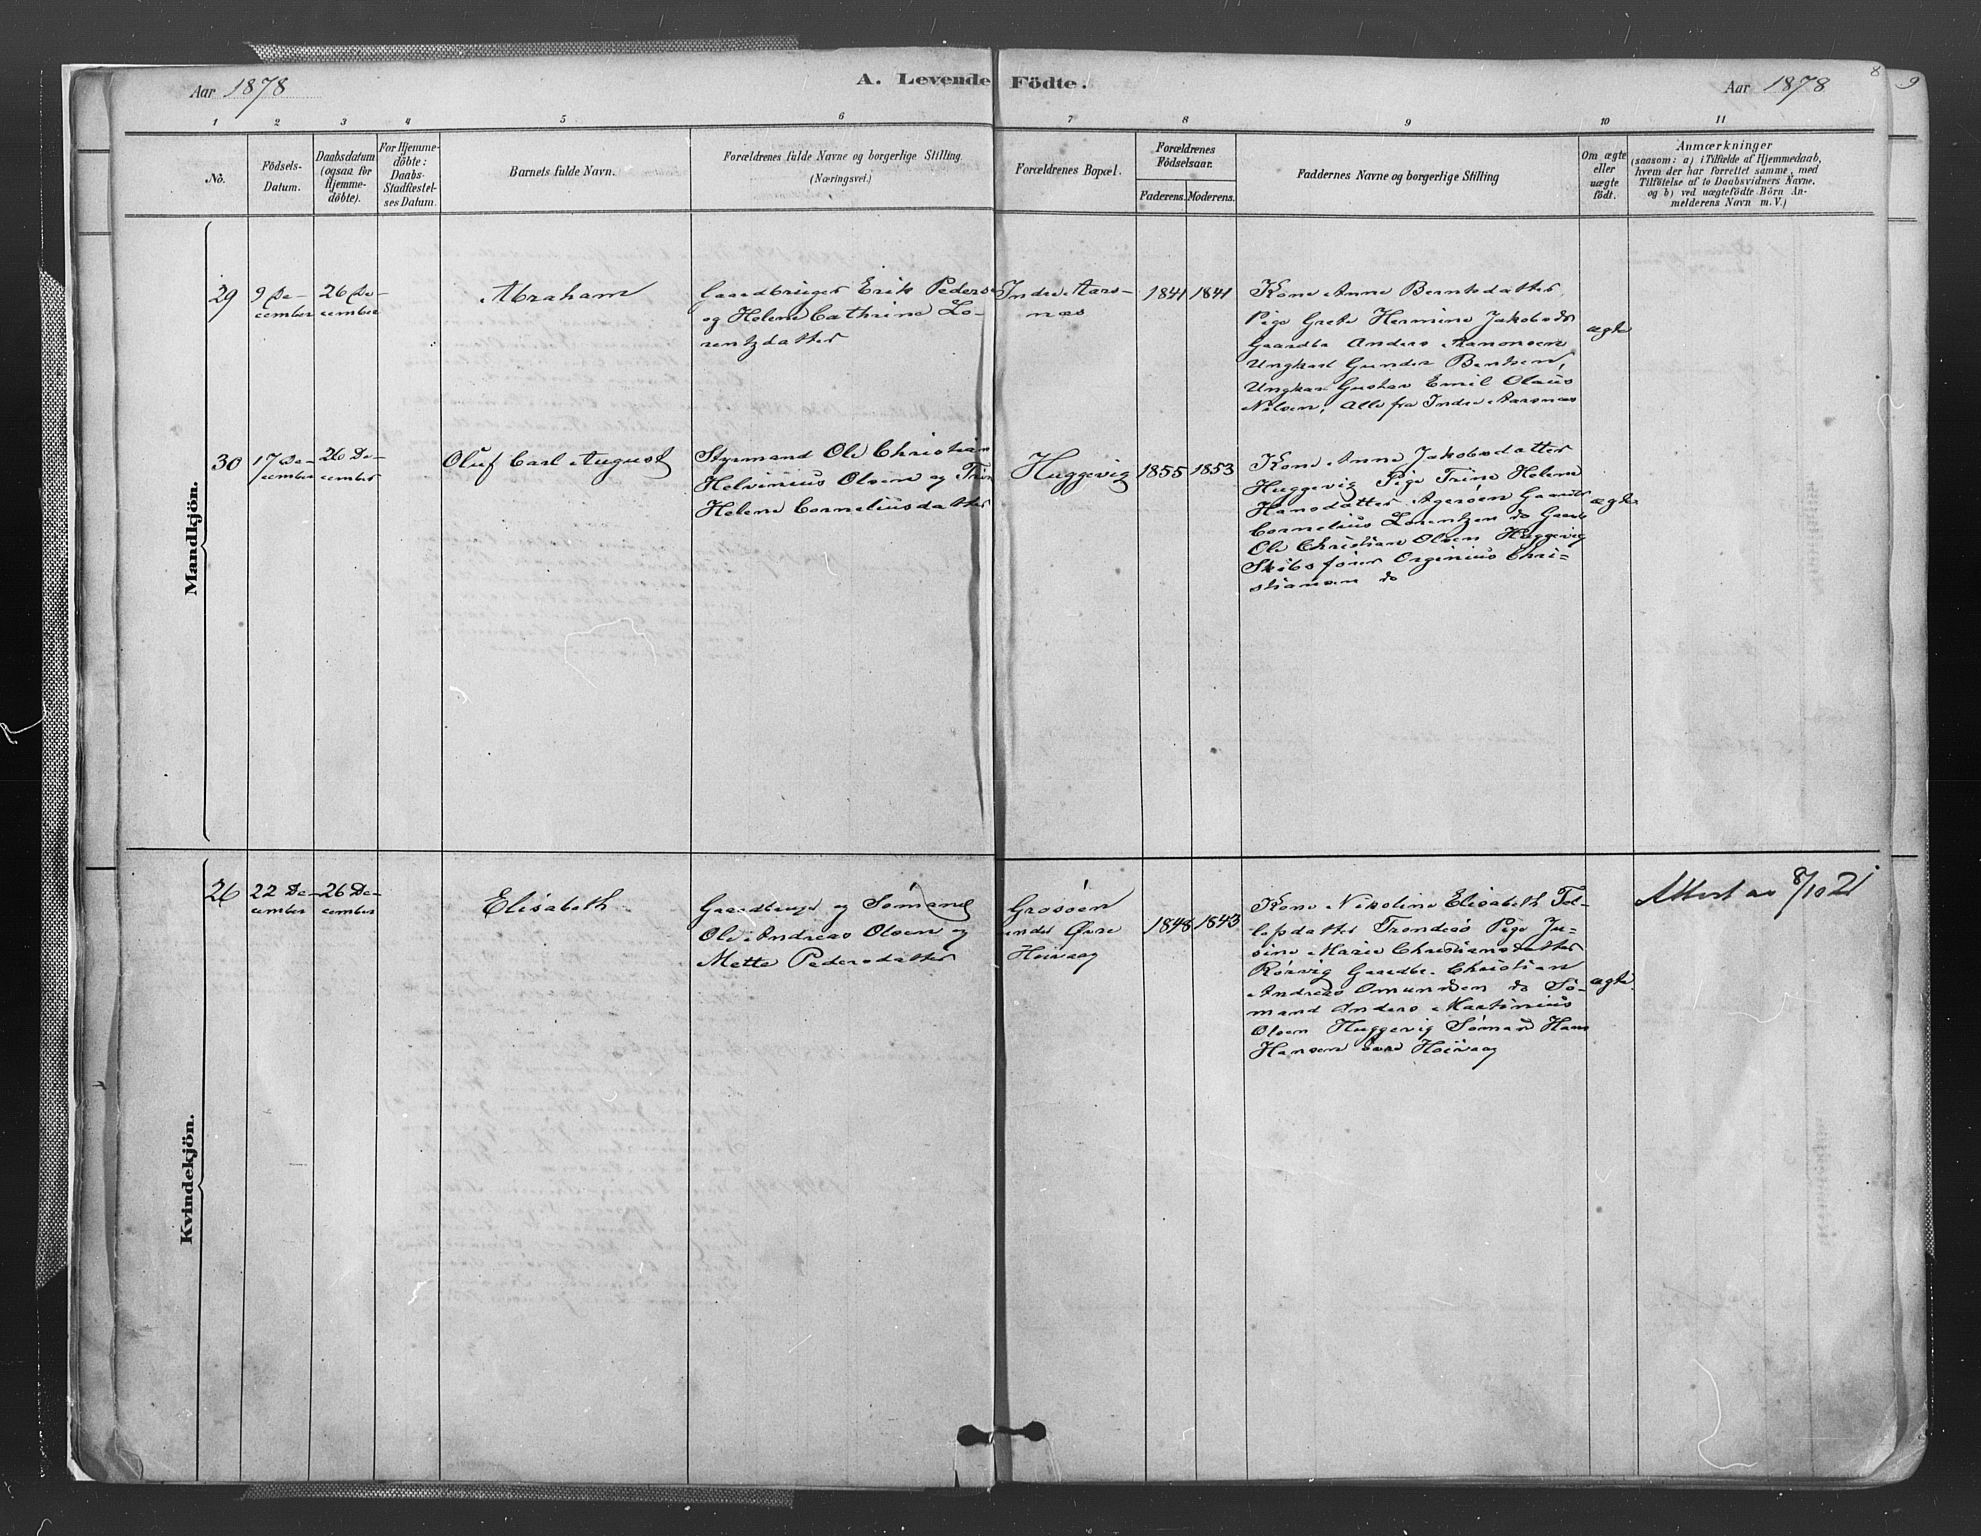 Aar 1878
A. Levende Födte.
Aar 1878
8
9
1 2 3 4 5 6 7 8 9 10 11
No.
Födsels-
Datum.
Daabsdatum
(ogsaa for
Hjemme-
döbte).
For Hjemme-
döbte:
Daabs-
Stadfæstel-
ses Datum.
Barnets fulde Navn.
Forældrenes fulde Navne og borgerlige Stilling
(Næringsvei.)
Forældrenes Bopæl.
Forældrenes
Födselsaar.
Faderens. Moderens.
Faddernes Navne og borgerlige Stilling
Om ægte
eller
uægte
födt.
Anmærkninger
(saasom: a) i Tilfælde af Hjemmedaab,
hvem der har forrettet samme, med
Tilföielse af to Daabsvidners Navne,
og b) ved uægtefödte Börn An-
melderens Navn m. V.)
Mandkjön.
29
9 De-
cember
26 De-
cember
Abraham
Gaardbruger Erik Peders
og Helene Cathrine Lo-
rentzdatter
Indre Aars-
næs
1841 1841
Kone Anne Berntsdatter,
Pige Grete Hermine Jakobsdr
Gaardbr Anders Aamonsen
Ungkarl Gunder Bentsen,
Ungkar Gustav Emil Olaus
Nilsen, Alle fra Indre Aarsnæs
ægte
30
17 De-
cember
26 De-
cember
Oluf Carl August
Styrmand Ole Christian
Helvinius Olsen og Trine
Helene Corneliusdatter
Huggevig
1855 1853
Kone Anne Jakobsdatter
Huggevig Pige Trine Helene
Hansdatter Agerøen Gaardb
Cornelius Lorentzen do Gaardb
Ole Christian Olsen Huggevig
Skibsfører Orginius Chri-
stiansen do
ægte
Kvindekjön.
26
22 De-
cember
26 De-
cember
Elisabeth
Gaardbruger og Sömand
Ole Andreas Olsen og
Mette Pedersdatter
Grosøen
under Øvre
Heivaag
1848 1843
Kone Nikoline Elisabeth Tel-
lefsdatter Trondesø Pige Ju-
sine Marie Christiansdatter
Rørvig Gaardbr. Christian
Andreas Omundsen do Sö-
mand Anders Martinius
Olsen Huggevig Sömand Hans
Hansen Øvre Heivaag
ægte.
Attest av 8/10 21